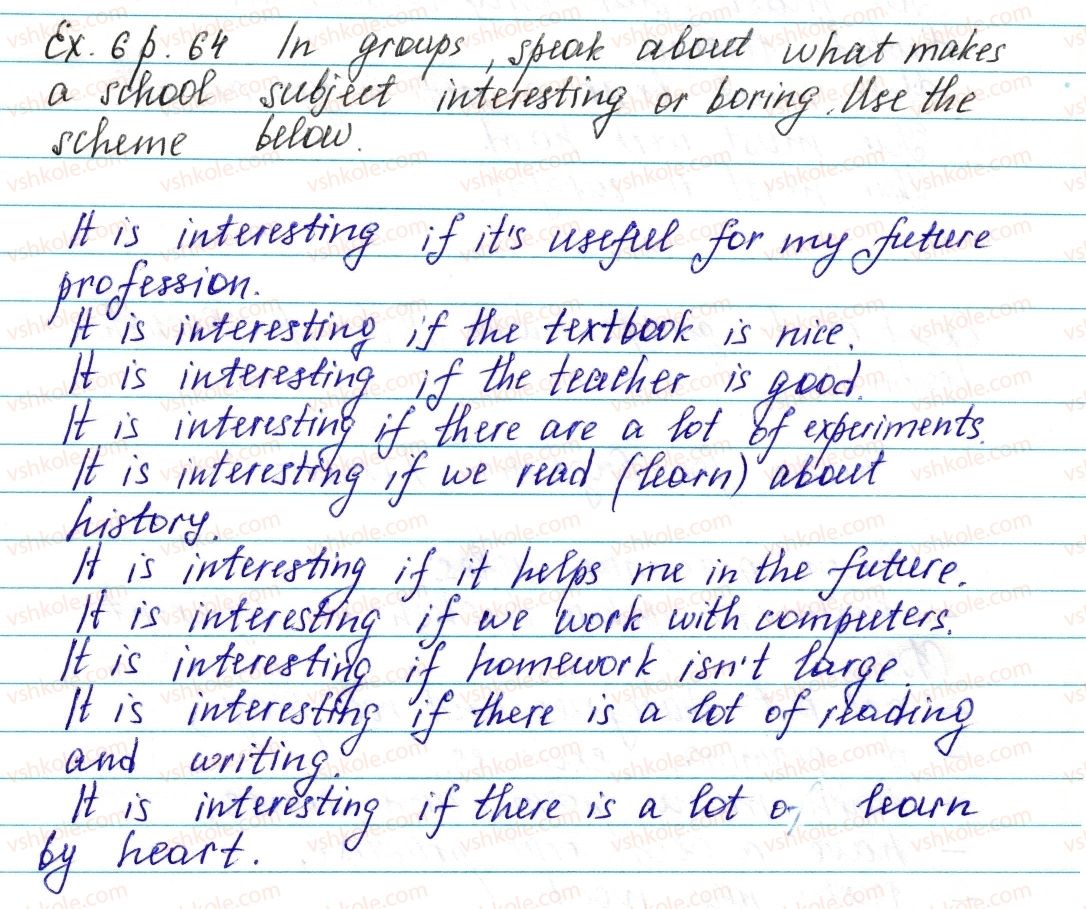 Ex. 6 p. 64 In groups, speak about what makes
a school subject interesting or boring. Use the
scheme below.
It is interesting if it's useful for my future
profession.
It is interesting if the textbook is nice.
It is interesting if the teacher is good.
It is interesting if there are a lot of experiments.
It is interesting if we read (learn) about
history.
It is interesting if it helps me in the future.
It is interesting if we work with computers.
It is interesting if homework isn't large.
It is interesting if there is a lot of reading
and writing.
It is interesting if there is a lot of learn
by heart.